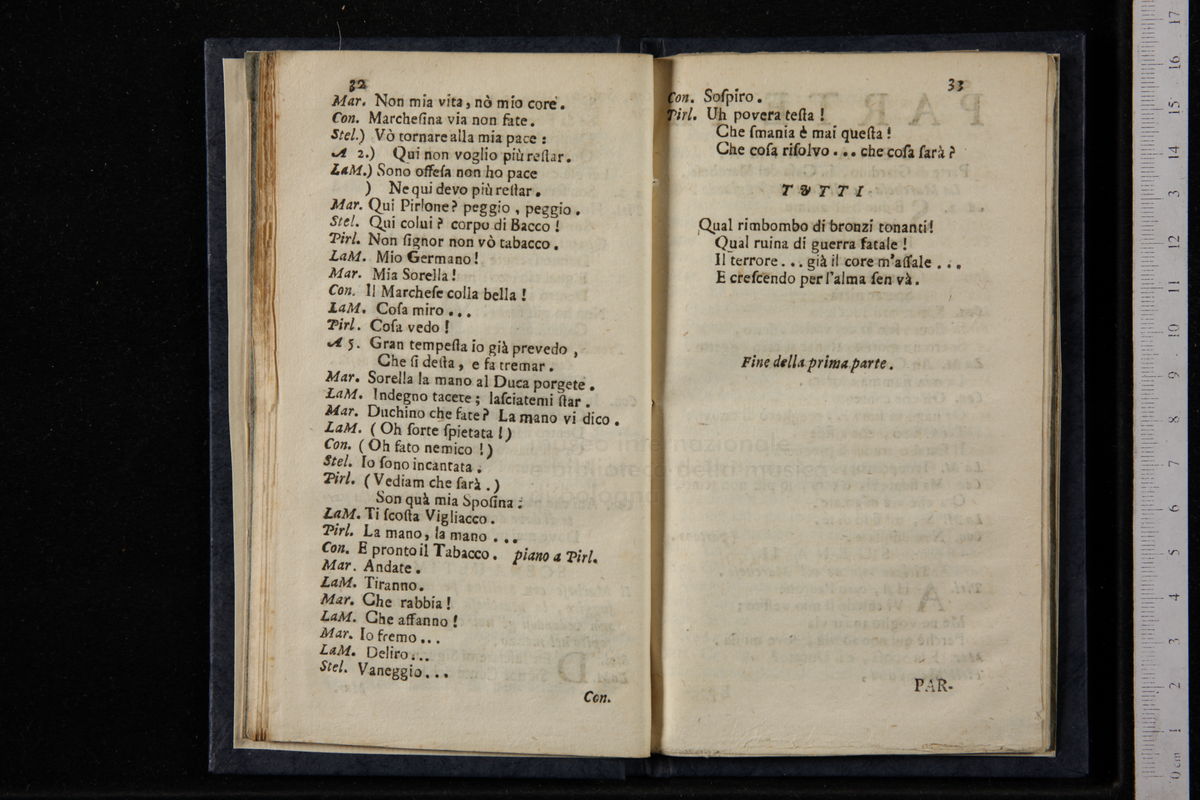 32
Mar. Non mia vita, nò mio core.
Con. Marcheſina via non fate.
Stel.) Vò tornare alla mia pace:
A 2.) Qui non voglio più reſtar.
LaM.) Sono offeſa non ho pace
) Ne qui devo più reſtar.
Mar. Qui Pirlone? peggio, peggio.
Stel. Qui colui? corpo di Bacco!
Pirl. Non ſignor non vò tabacco.
LaM. Mio Germano!
Mar. Mia Sorella!
Con. Il Marcheſe colla bella!
LaM. Coſa miro...
Pirl. Coſa vedo!
A 5. Gran tempeſta io già prevedo,
Che ſi deſta, e fa tremar.
Mar. Sorella la mano al Duca porgete.
LaM. Indegno tacete; laſciatemi ſtar.
Mar. Duchino che fate? La mano vi dico.
LaM. (Oh ſorte ſpietata!)
Con. (Oh fato nemico!)
Stel. Io ſono incantata.
Pirl. (Vediam che ſarà.)
Son quà mia Spoſina:
LaM. Ti ſcoſta Vigliacco.
Pirl. La mano, la mano...
Con. E pronto il Tabacco. piano a Pirl.
Mar. Andate.
LaM. Tiranno.
Mar. Che rabbia!
LaM. Che affanno!
Mar. Io fremo...
LaM. Deliro...
Stel. Vaneggio...
Con.
33
Con. Soſpiro.
Pirl. Uh povera teſta!
Che ſmania è mai queſta!
Che coſa riſolvo... che coſa ſarà?
TUTTI.
Qual rimbombo di bronzi tonanti!
Qual ruina di guerra fatale!
Il terrore... già il core m'aſſale...
E creſcendo per l'alma ſen và.
Fine della prima parte.
PAR-
museo internazionale
e biblioteca della musica
di bologna
0 cm 1 2 3 4 5 6 7 8 9 10 11 12 13 14 15 16 17